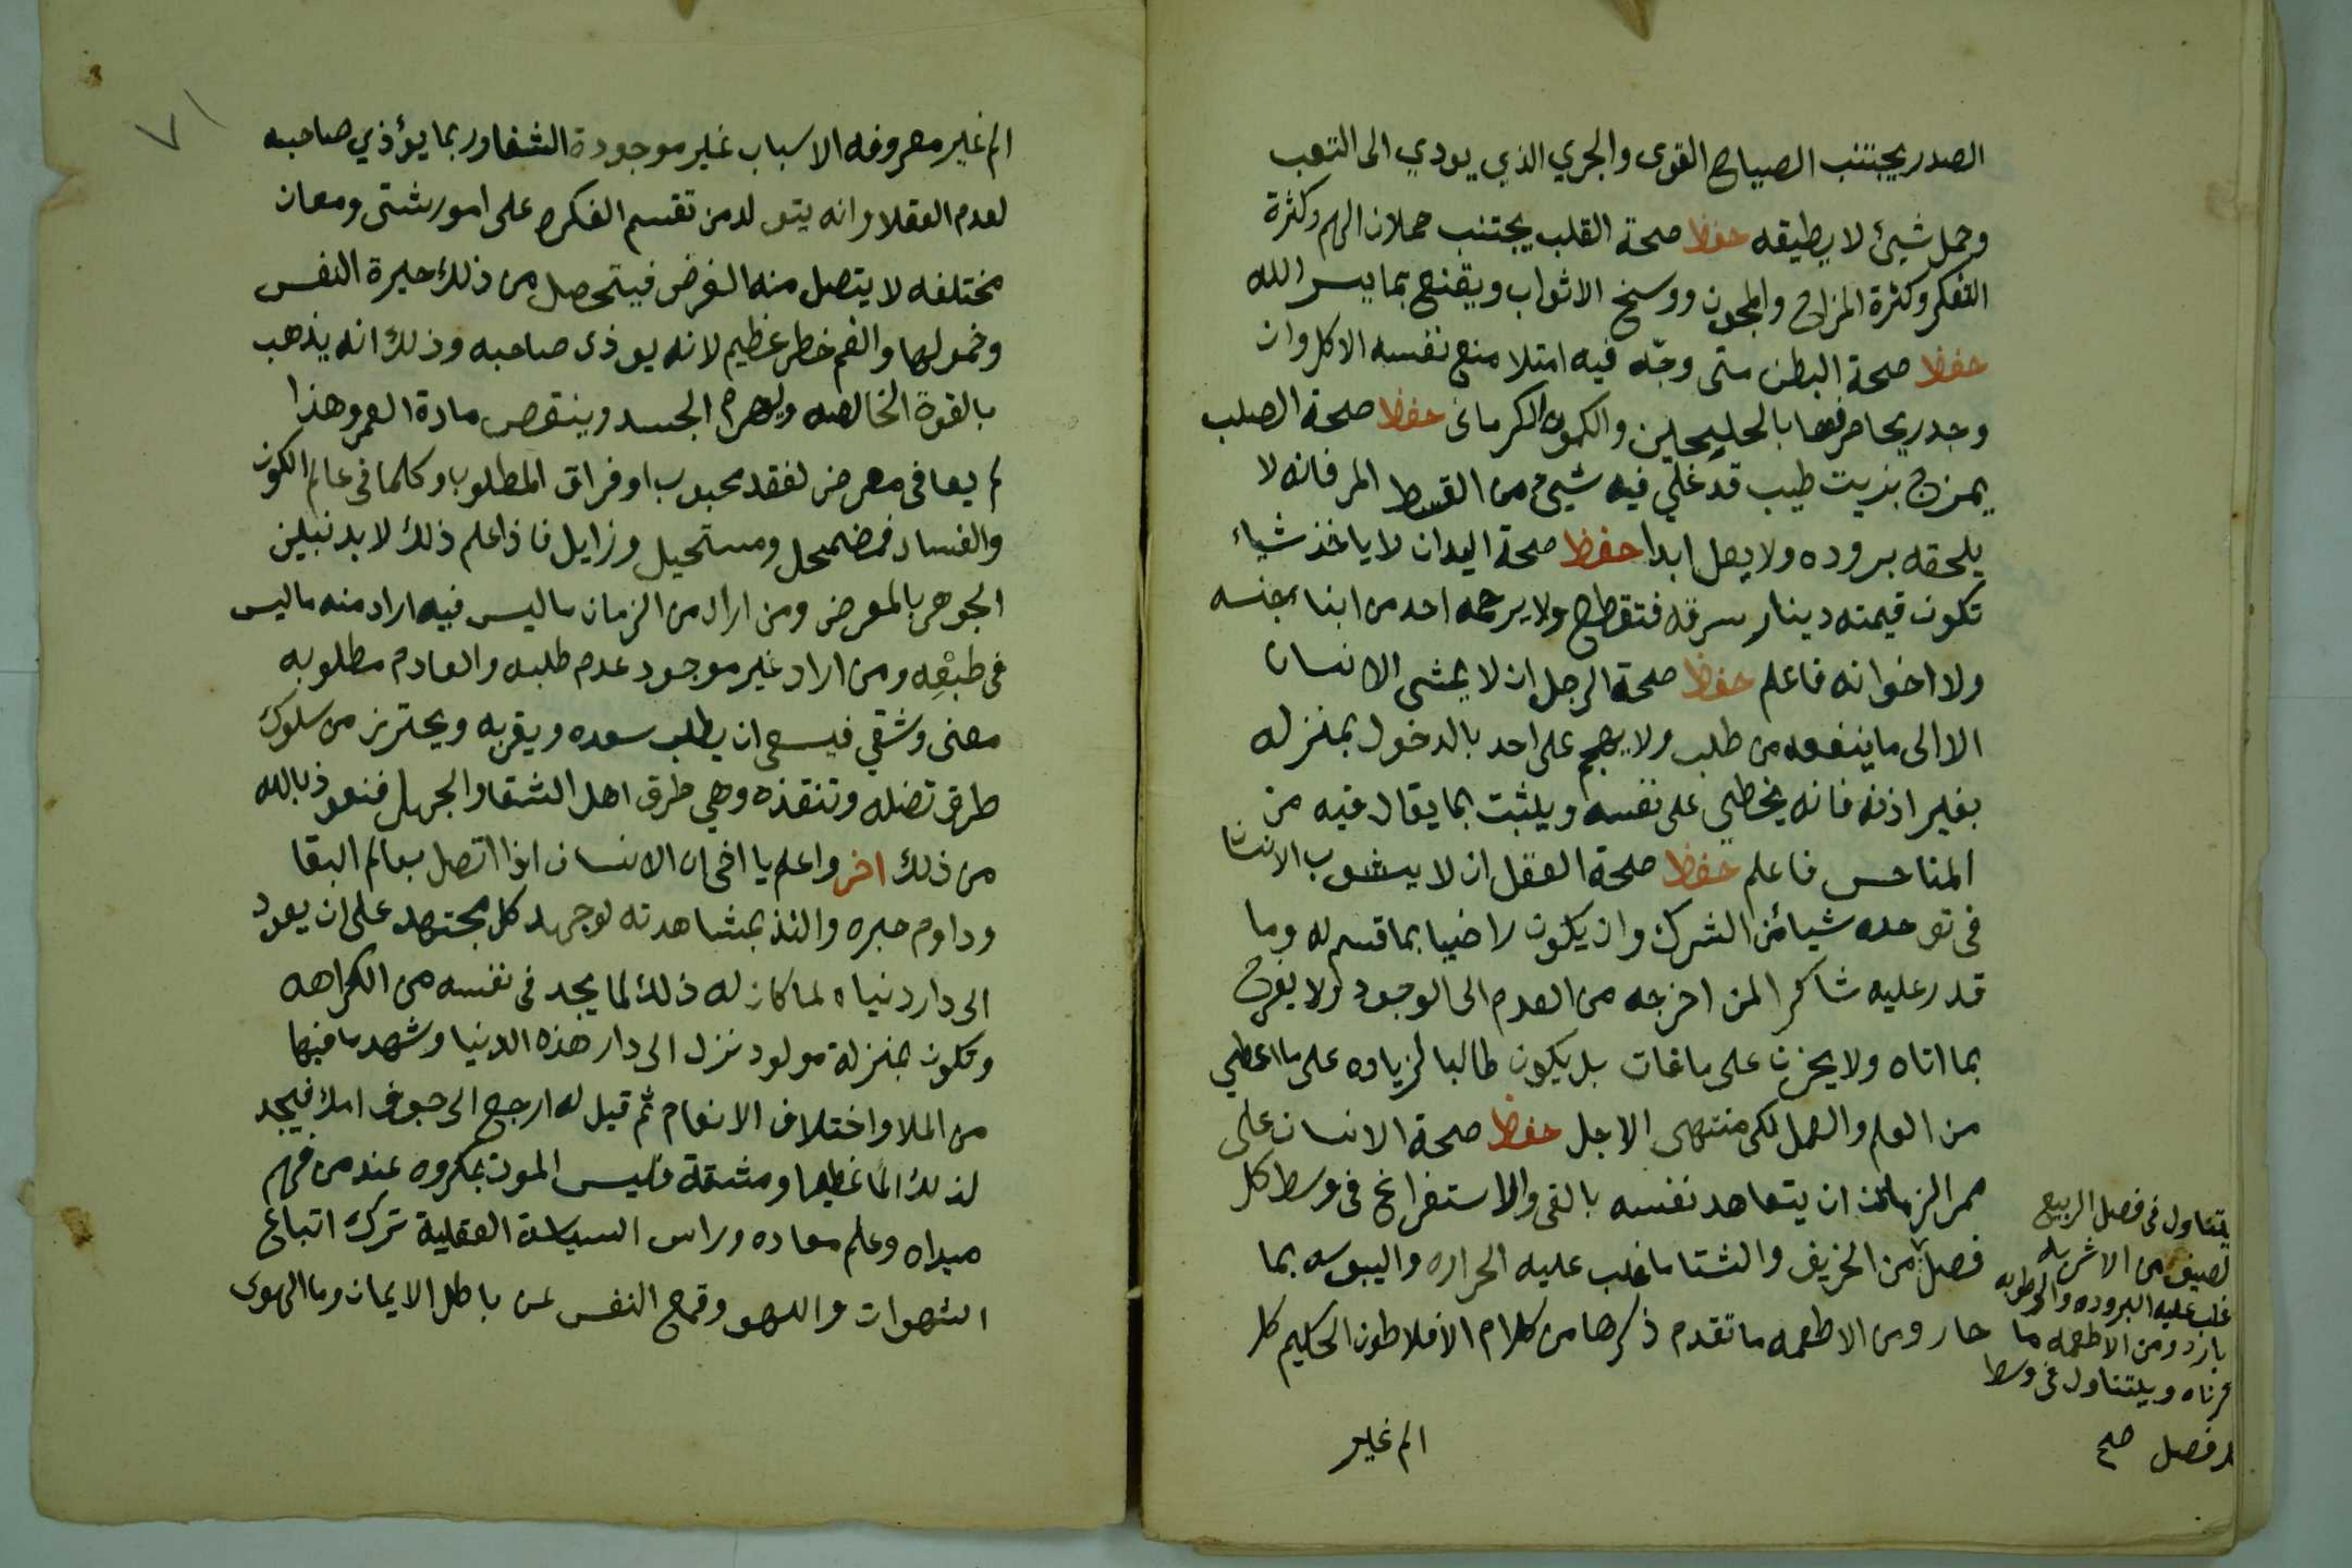 الصدر يجتنب الصياح القوى والجري الذي يودي الى التعب
وحمل شيئ لا يطيقه حفظ صحة القلب يجتنب حملان الهم وكثرة
التفكر وكثرة المزاح والمجون ووسخ الاثواب ويقنع بما يسر الله
حفظ صحة البطن متى وجد فيه امتلا منع نفسه الاكل وان
وجد ريحا صرفها بالحليحلين والكمون الكرمانى حفظ صحة الصلب
يمزج بزيت طيب قد غلي فيه شيئ من القسط المر فانه لا
يلحقه بروده ولا يعل ابدا حفظ صحة اليدان لا ياخذ شياء
تكون قيمته دينار سرقه فتقطع ولا يرحمه احد من ابنا جنسه
ولا اخوانه فاعلم حفظ صحة الرجل ان لا يمشى الانسان
الا الى ما ينفعه من طلب ولا يهجم على احد بالدخول بمنزله
بغير اذنه فانه يخطي على نفسه ويلثبت بما يقال فيه من
المناحس فاعلم حفظ صحة العقل ان لا يشوب الانسان
فى توحده شيائن الشرك وان يكون راضيا بما قسم له وما
قدر عليه شاكر المن اخرجه من العدم الى الوجود ولا يفرح
بما اتاه ولا يحزن على ما فات بل يكون طالبا لزياده على ما اعطي
من العلم والعمل لكى منتهى الاجل حفظ صحة الانسان على
ممر الزمان ان يتعاهد نفسه بالقى والاستفراغ فى وسط كل
فصل من الخريف والشتا ما غلب عليه الحراره واليبوسه بما
حار ومن الاطعمه ما تقدم ذكرها من كلام الافلاطون الحكيم كل
يتناول فى فصل الربيع
لصيف من الاشربه
غلب عليه البروده والرطوبه
بارد ومن الاطعمه ما
كرناه ويلتناول فى وسط
لد فصل صح
الم غير
٧١
الم غير معروفه الاسباب غير موجودة الشفا وربما يؤذي صاحبه
لعدم العقلا وانه يتولد من تقسم الفكره على امور شتى ومعان
مختلفه لا يتصل منه الغرض فيتحصل من ذلك حيرة النفس
وخمولها والغم خطر عظيم لانه يوذى صاحبه وذلك انه يذهب
بالقوة الخالصه ويهرم الجسد وينقص مادة العمر وهذا
لم يعافى معرض لفقد محبوب او فراق المطلوب وكلما فى عالم الكون
والفساد فمضمحل ومستحيل وزايل فاذا علم ذلك لا بد نبلين
الجوهر بالمعرض ومن اراد من الزمان ما ليس فيه اراد منه ما ليس
فى طبعه ومن اراد غير موجود عدم طلبه والعادم مطلوبه
معنى وشقي فيسعى ان يطلب سعده ويقربه ويحترز من سلوك
طرق تضله وتنقذه وهي طرق اهل الشقا والجهل فنعوذ بالله
من ذلك اخر واعلم يا اخى ان الانسان اذا اتصل بعالم البقا
وداوم حبره والتذ بمشاهدته لو جهد كل مجتهد على ان يعود
الى دار دنياه لما كان له ذلك لما يجد فى نفسه من الكراهه
وتكون بمنزلة مولود نزل الى دار هذه الدنيا وشهد ما فيها
من الملا واختلاف الانعام ثم قيل له ارجع الى جوف امك فيجد
لذلك الما عظيما ومشقة فليس الموت بمكروه عند من فهم
مبداه وعلم معاده وراس السياسة العقلية ترك اتباع
الشهوات واللهو وقمع النفس عن باطل الايمان وما الهوى